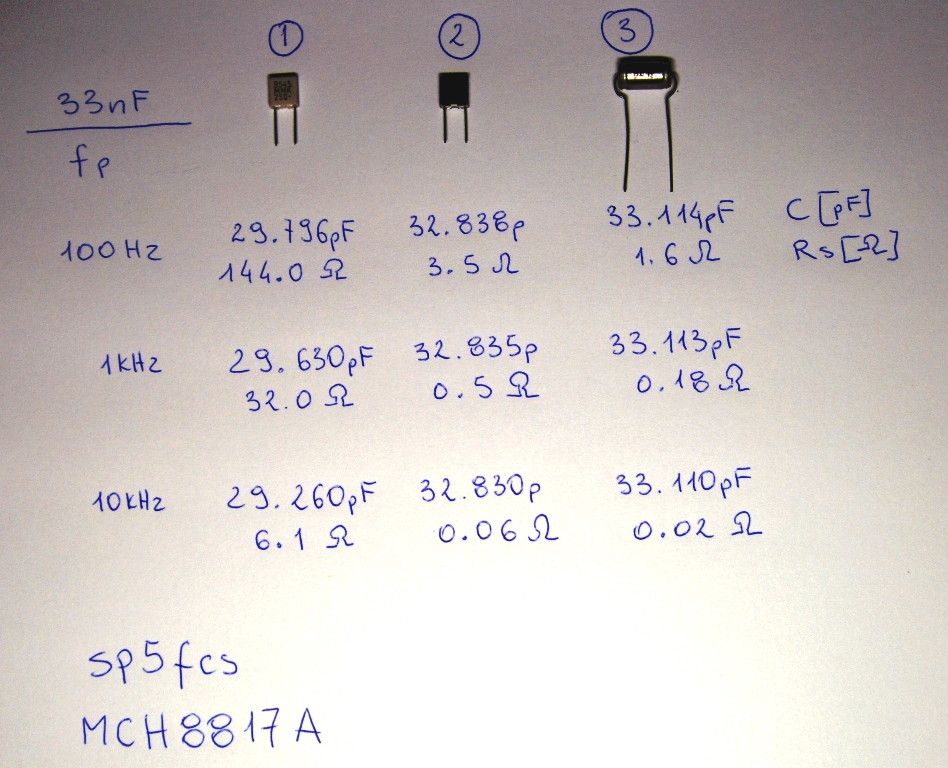 1 2 3
33nF
fp
29.796pF 32.838p 33.114pF C[pF]
100Hz 144.0 Ω 3.5 Ω 1.6 Ω Rs[Ω]
1kHz 29.630pF 32.835p 33.113pF
32.0 Ω 0.5 Ω 0.18 Ω
10kHz 29.260pF 32.830p 33.110pF
6.1 Ω 0.06 Ω 0.02 Ω
sp5fcs
MCH8817A